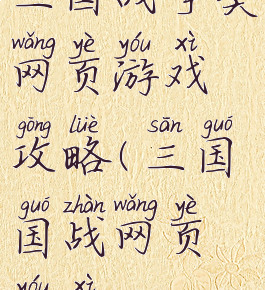 三国战争类
wǎng yè yóu xì
网页游戏
gōng lüè sān guó
攻略(三国
guó zhàn wǎng yè
国战网页
yóu xì